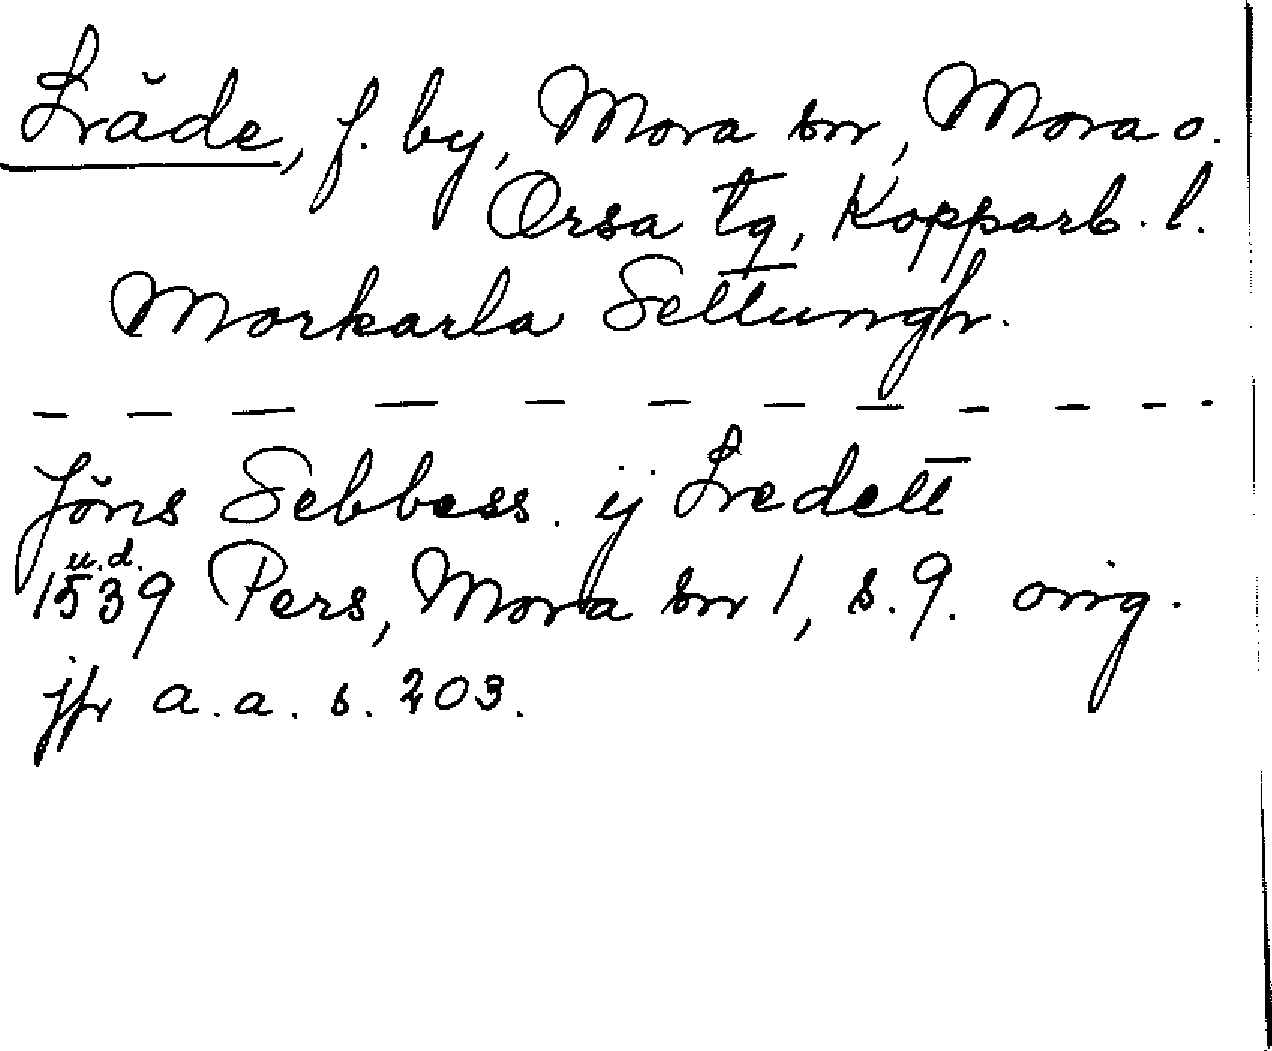 Lräde, f. by, Mora sn, Mora o.
Orsa tg, Kopparb. l.
Morkarla Settungh.
Jöns Sebbess. ij Lredett
u.d.
1539 Pers, Mora sn 1, s. 9. orig.
jfr a.a. s. 203.